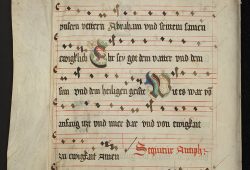 vnsern vettern Abraham vnd seinem samen
ewigklich Ehr sey got dem vatter vnd dem
sun vnd dem heiligen geiste Wie es war vō
anfang vnd ymer dar vnd von ewigkeit
zu ewigkeit Amen Sequitur Antiph: